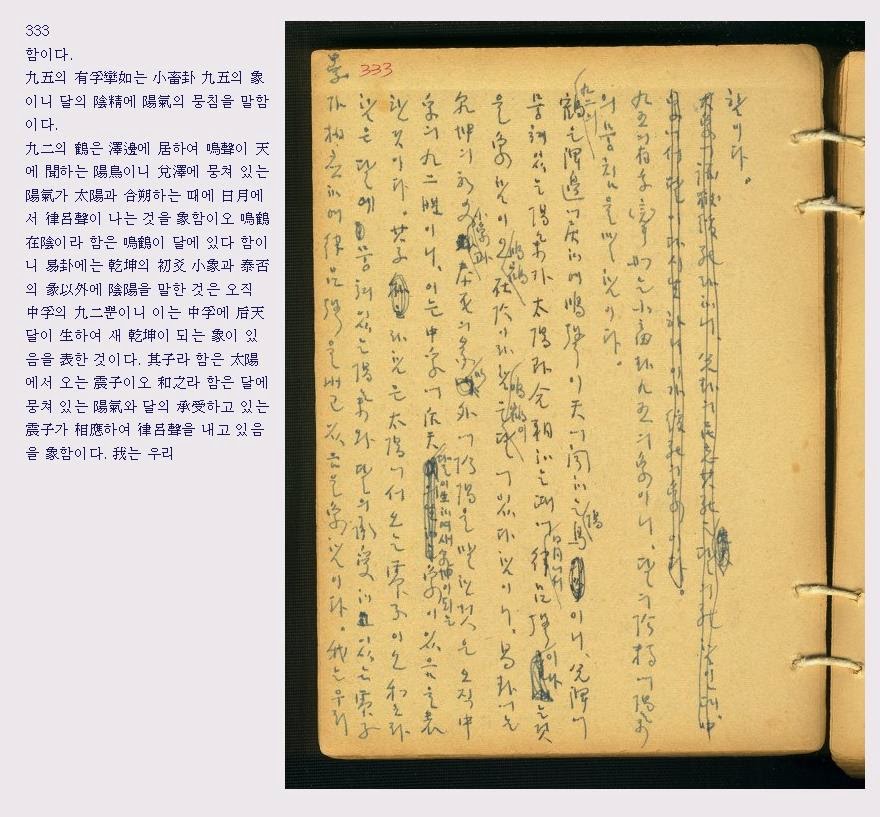 333
함이다.
九五의 有孚攣如는 小畜卦 九五의 象
이니 달의 陰精에 陽氣의 뭉침을 말함
이다.
九二의 鶴은 澤邊에 居하여 鳴聲이 天
에 聞하는 陽鳥이니 兌澤에 뭉쳐 있는
陽氣가 太陽과 合朔하는 때에 日月에
서 律呂聲이 나는 것을 象함이오 鳴鶴
在陰이라 함은 鳴鶴이 달에 있다 함이
니 易卦에는 乾坤의 初爻 小象과 泰否
의 彖以外에 陰陽을 말한 것은 오직
中孚의 九二뿐이니 이는 中孚에 后天
달이 生하여 새 乾坤이 되는 象이 있
음을 表한 것이다. 其子라 함은 太陽
에서 오는 震子이오 和之라 함은 달에
뭉쳐 있는 陽氣와 달의 承受하고 있는
震子가 相應하여 律呂聲을 내고 있음
을 象함이다. 我는 우리
333
함이다.
九五의 有孚攣如는 小畜卦 九五의 象이니 달의 陰精에 陽氣
의 뭉침을 말함이다.
九二의
鶴은 澤邊에 居하여 鳴聲이 天에 聞하는 陽鳥이니 兌澤에
뭉쳐 있는 陽氣가 太陽과 合朔하는 때에 日月에서 律呂聲이 나는 것
을 象함이오 鳴鶴在陰이라 함은 鳴鶴이 달에 있다 함이니 易卦에는
乾坤의 初爻 小象과 泰否의 彖以外에 陰陽을 말한 것은 오직 中
孚의 九二뿐이니 이는 中孚에 后天달이 生하여 새 乾坤이 되는 象이 있음을 表
한 것이다. 其子라 함은 太陽에서 오는 震子이오 和之라
함은 달에 뭉쳐 있는 陽氣와 달의 承受하고 있는 震子
가 相應하여 律呂聲을 내고 있음을 象함이다. 我는 우리